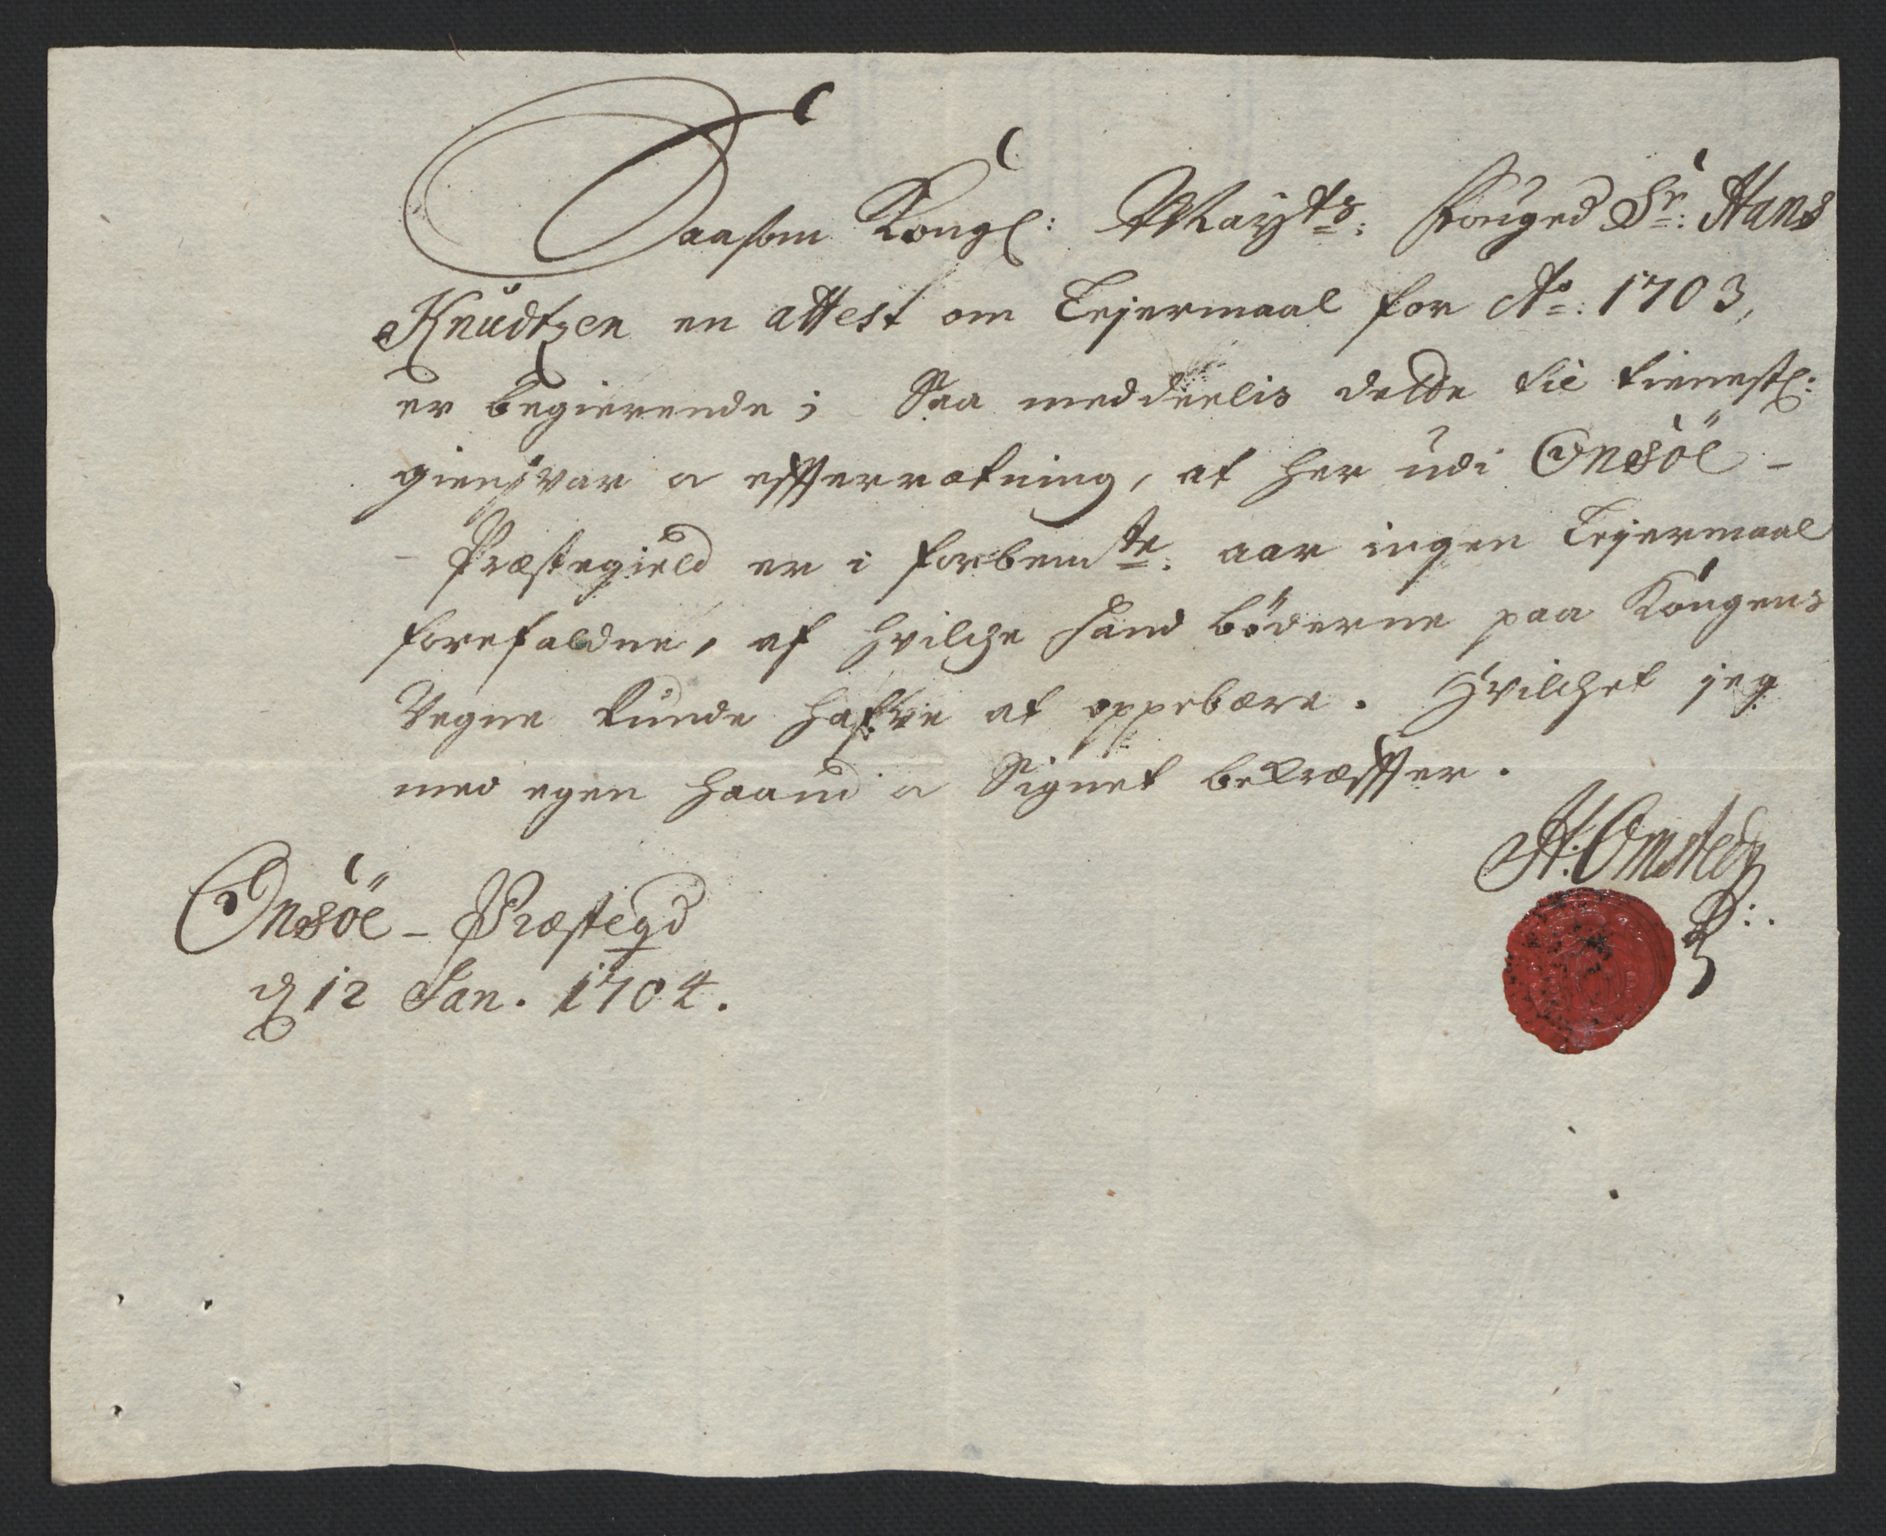 Saasom Kongl: Mayts: Fouged Sr: Hans
Knudtzen en attest om Lejermaal for Ao: 1703,
er begierende; Saa meddeelis dette til tienestl:
giensvar a effterrætning, at her udi Onsöe -
- Præstegield er i forbemte: aar ingen Lejermaal
forefaldne, af hvilche hand böderne paa Kongens
Vegne kunde hafve at oppebære. Hvilchet jeg
med egen haand a Signet bekræffter.
H: Omsted
Onsöe - Præstegd
d 12 Jan. 1704.